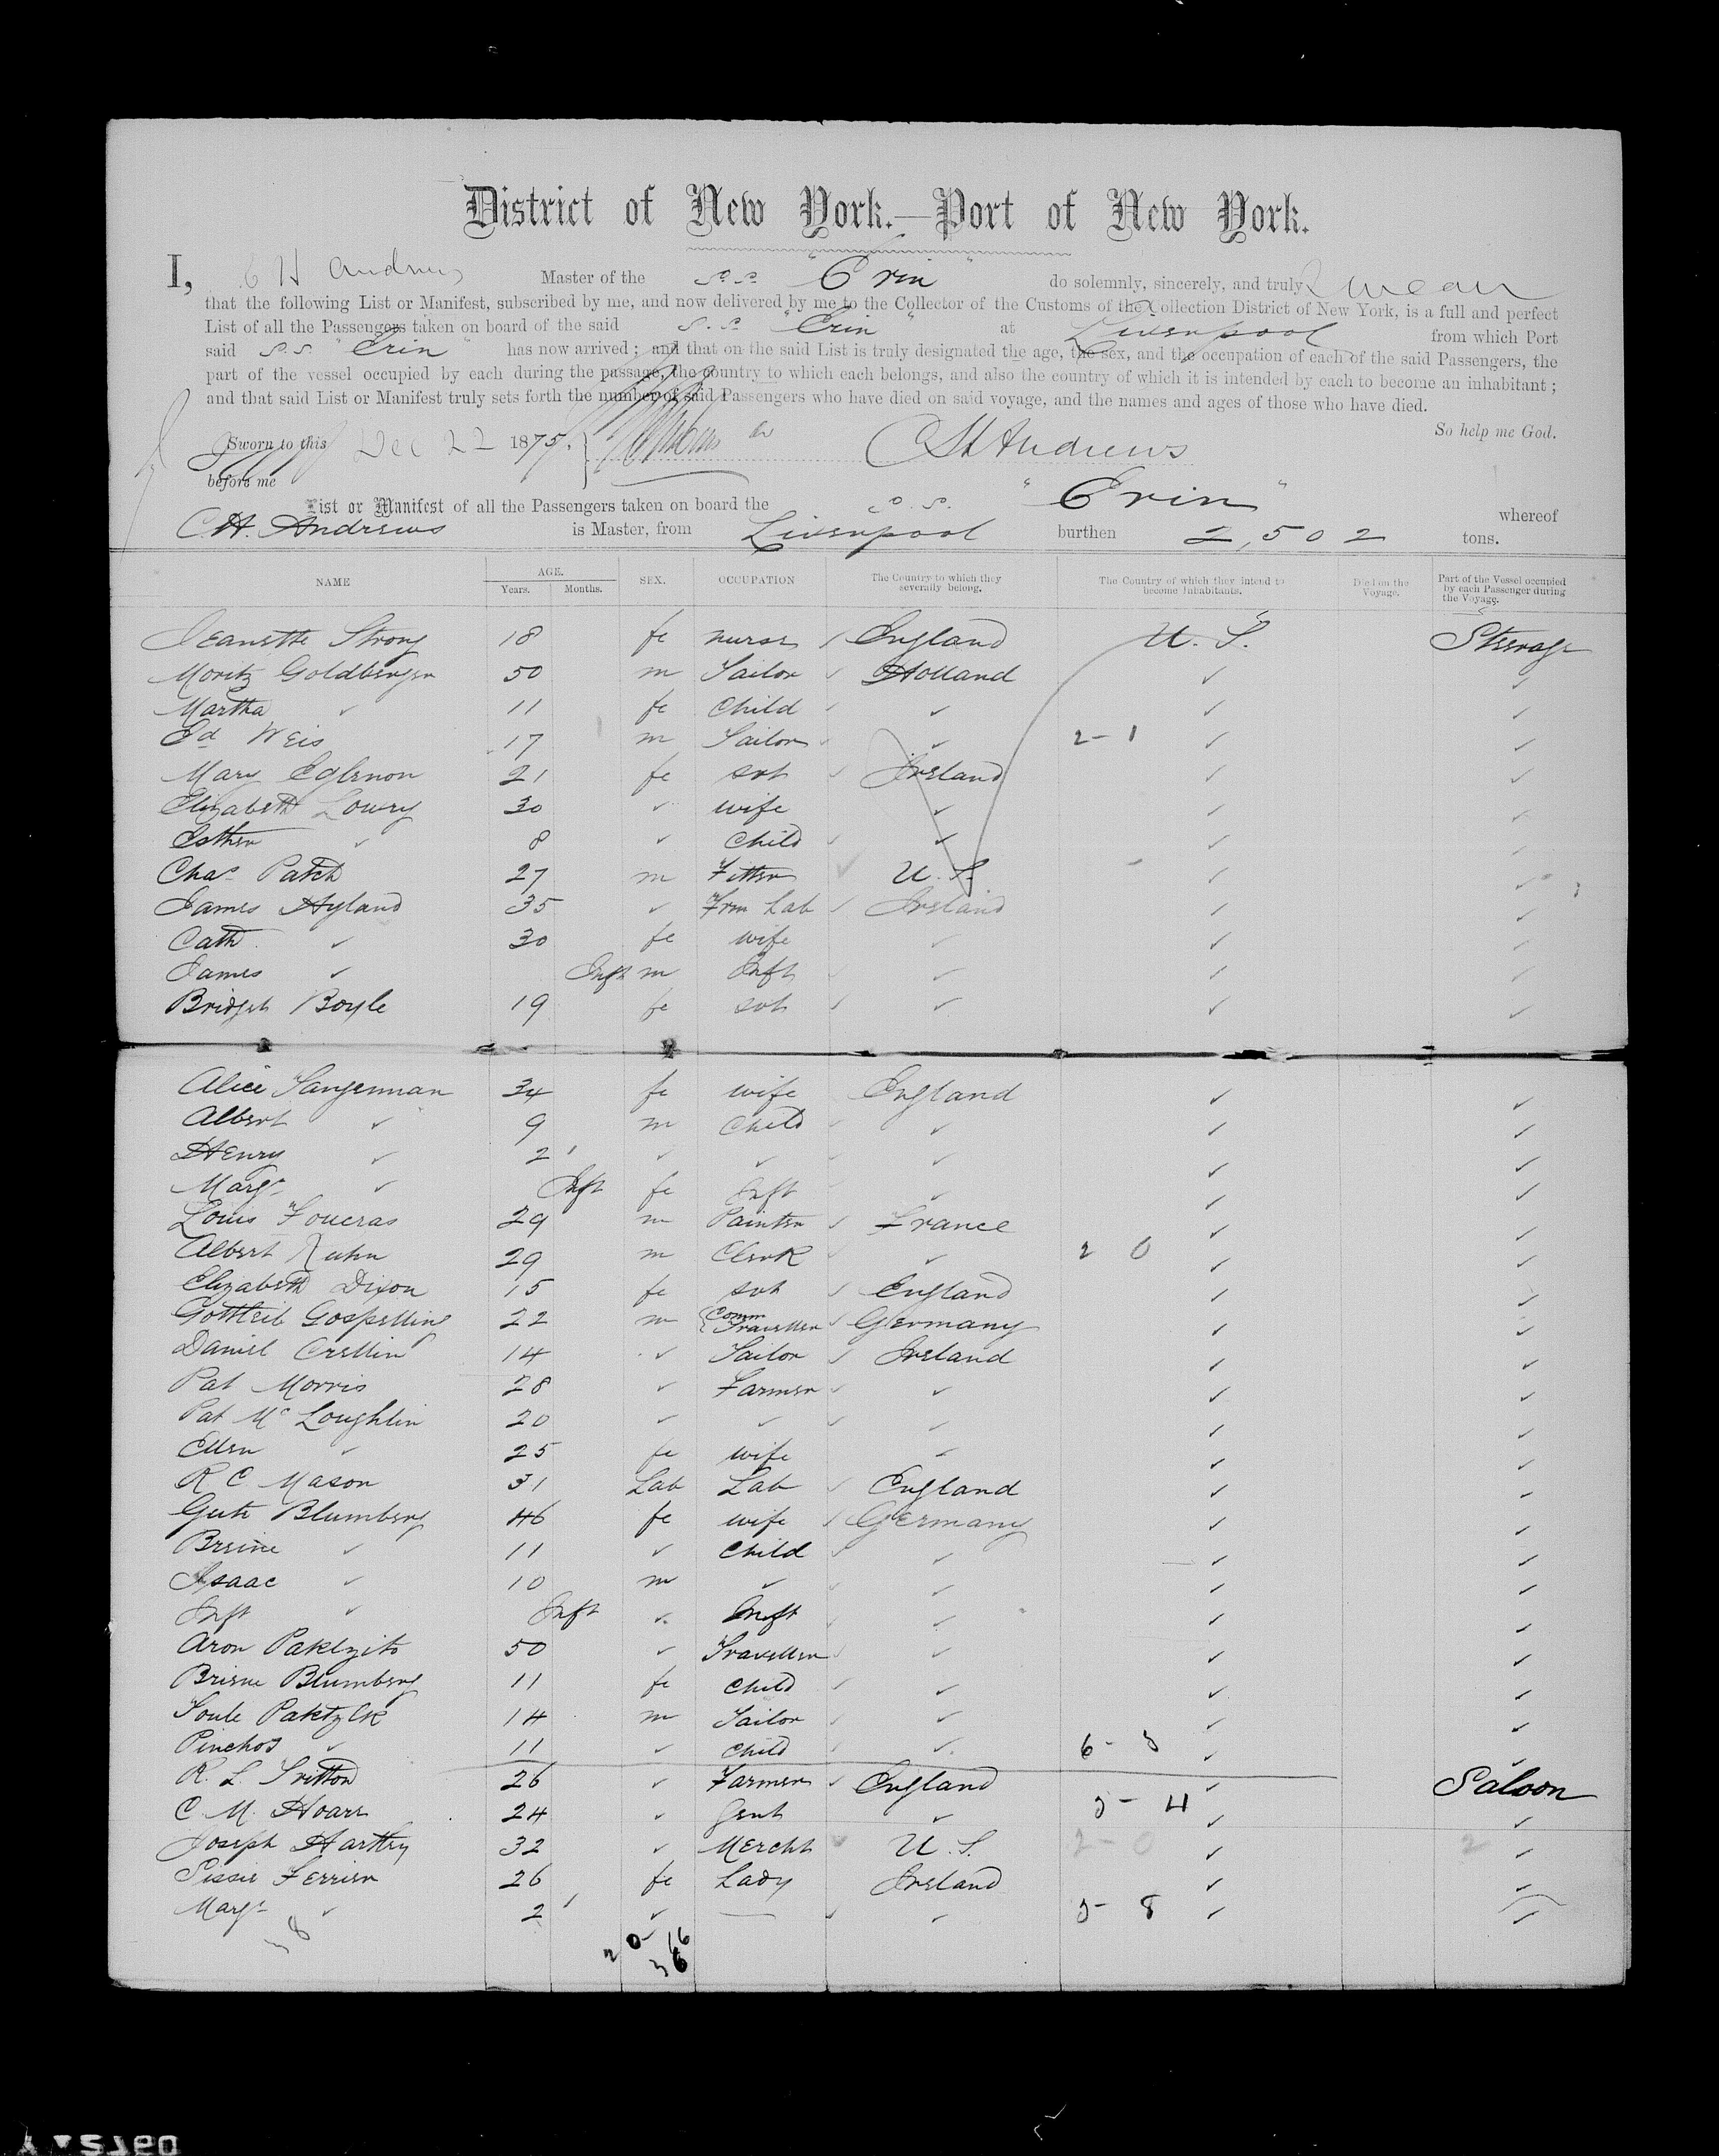 District of New York.—Port of New York.
I, C H Andrews Master of the S.S. "Erin" do solemnly, sincerely, and truly swear
that the following List or Manifest, subscribed by me, and now delivered by me to the Collector of the Customs of the Collection District of New York, is a full and perfect
List of all the Passengers taken on board of the said S.S. "Erin" at Liverpool from which Port
said S.S. "Erin" has now arrived; and that on the said List is truly designated the age, the sex, and the occupation of each of the said Passengers, the
part of the vessel occupied by each during the passage, the country to which each belongs, and also the country of which it is intended by each to become an inhabitant;
and that said List or Manifest truly sets forth the number of said Passengers who have died on said voyage, and the names and ages of those who have died.
So help me God.
Sworn to this Dec 22 1875. CH Andrews
before me
List or Manifest of all the Passengers taken on board the S.S. "Erin" whereof
C.H. Andrews is Master, from Liverpool burthen 2,502 tons.
NAME AGE. Years. Months. SEX. OCCUPATION The Country to which they severally belong. The Country of which they intend to become Inhabitants. Died on the Voyage. Part of the Vessel occupied by each Passenger during the Voyage.
Jeanette Strong 18 fe nurse England U.S. Steerage
Moritz Goldberger 50 m Tailor Holland ✓ ✓
Martha ✓ 11 fe Child ✓ ✓ ✓
Ed Weis 17 m Tailor ✓ 2-1 ✓ ✓
Mary Eglenon 21 fe svt Ireland ✓ ✓
Elizabeth Lowry 30 ✓ wife ✓ ✓ ✓
Esther ✓ 8 ✓ Child ✓ ✓ ✓
Chas Patch 27 m Fitter U.S. ✓ ✓
James Hyland 35 ✓ Frm Lab Ireland ✓ ✓
Cath ✓ 30 fe wife ✓ ✓ ✓
James ✓ Inft m Inft ✓ ✓ ✓
Bridget Boyle 19 fe svt ✓ ✓ ✓
Alice Sangerman 34 fe wife England ✓ ✓
Albert ✓ 9 m Child ✓ ✓ ✓
Henry ✓ 2 ✓ ✓ ✓ ✓ ✓
Margt ✓ Inft fe Inft ✓ ✓ ✓
Louis Foucras 29 m Painter France ✓ ✓
Albert Kuhn 29 m Clerk ✓ 2 0 ✓ ✓
Elizabeth Dixon 15 fe svt England ✓ ✓
Gottleib Gospelling 22 m Comm Traveller Germany ✓ ✓
Daniel Crellin 14 ✓ Tailor Ireland ✓ ✓
Pat Morris 28 ✓ Farmer ✓ ✓ ✓
Pat McLoughlin 20 ✓ ✓ ✓ ✓ ✓
Ellen ✓ 25 fe wife ✓ ✓ ✓
R C Mason 31 Lab Lab England ✓ ✓
Gute Blumberg 46 fe wife Germany ✓ ✓
Breine ✓ 11 ✓ Child ✓ ✓ ✓
Isaac ✓ 10 m ✓ ✓ ✓ ✓
Inft ✓ Inft ✓ Inft ✓ ✓ ✓
Aron Paklzits 50 ✓ Traveller ✓ ✓ ✓
Briene Blumberg 11 fe Child ✓ ✓ ✓
Soule Paktzlk 14 m Tailor ✓ ✓ ✓
Pinchos ✓ 11 ✓ Child ✓ 6-5 ✓ ✓
R. L. Tritton 26 ✓ Farmer England ✓ Saloon
C. M. Hoare 24 ✓ Gent ✓ 5-4 ✓ ✓
Joseph Hartley 32 ✓ Mercht U.S. 2-0 ✓ 2 ✓
Sissie Ferrier 26 fe Lady Ireland ✓ ✓
Margt ✓ 2 ✓ — ✓ 5-8 ✓ ✓
38
20 16
36